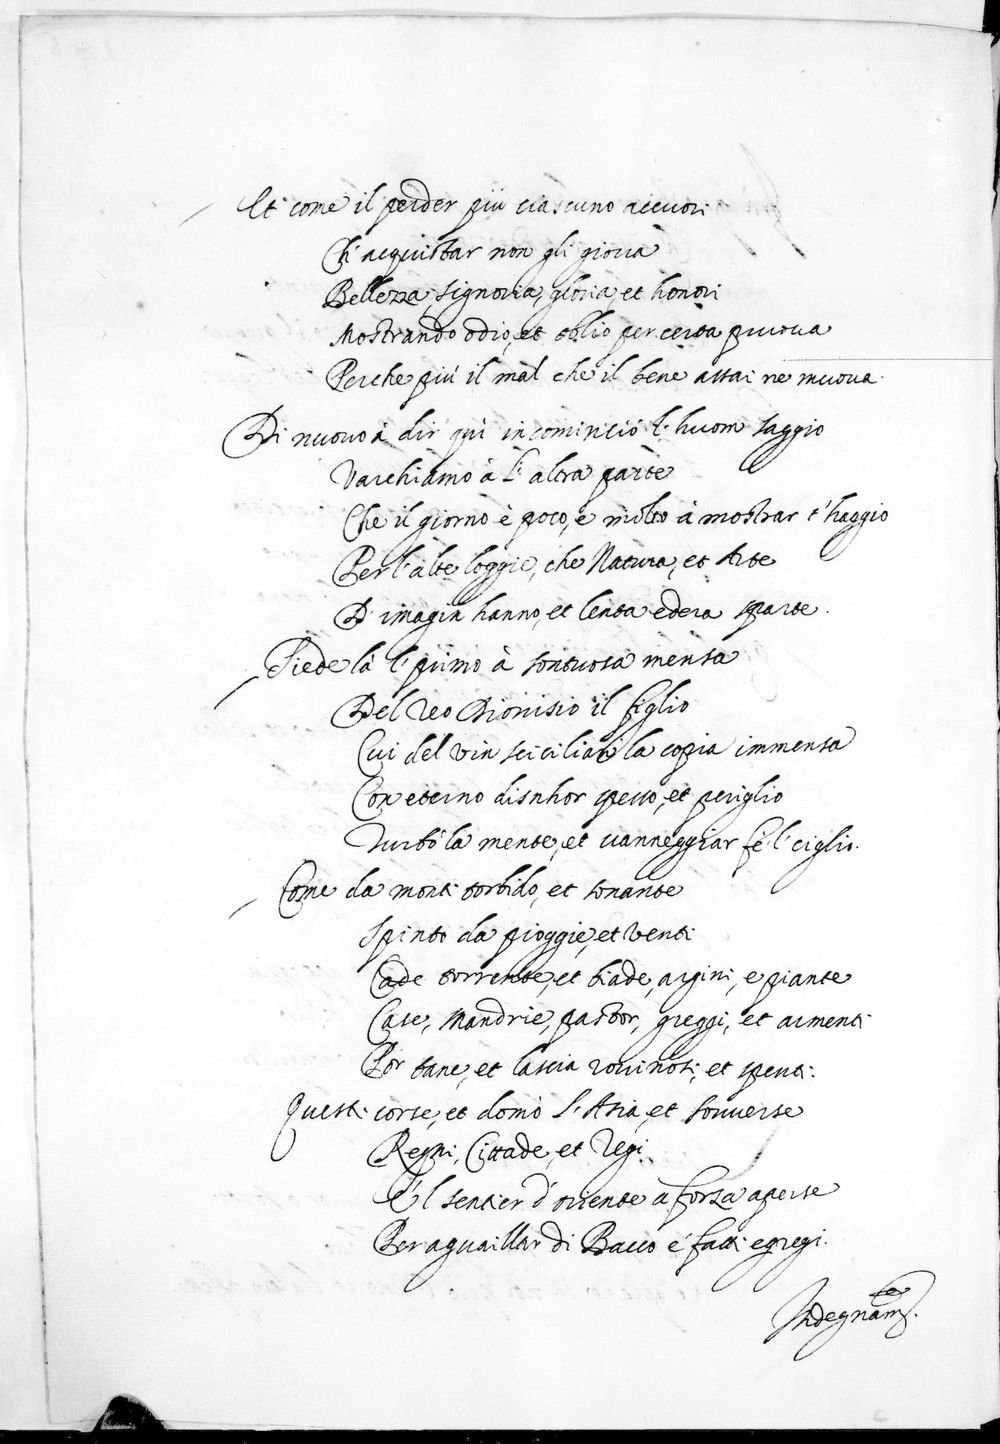 Et come il perder più ciascuno accuori
Ch' acquistar non gli gioua
Bellezza, signoria, gloria, et honori
Mostrando odio, et oblio per certa pruoua
Perche più il mal che il bene assai ne muoua.
Di nuouo à dir quì incominciò l' huom saggio
Varchiamo à l' altra parte
Che il giorno è poco, e molto à mostrar t' haggio
Per l' alte loggie, che Natura, et Arte
D' imagin hanno, et lenta edera sparte.
Siede là 'l primo à sontuosa mensa
Del Reo Dionisio il figlio
Cui del vin scicilian la copia immensa
Con eterno disnhor spesso, et periglio
Turbò la mente, et uanneggiar fè 'l ciglio.
Come da monti torbido, et sonante
Spinto da pioggie, et venti
Cade torrente, et biade, argini, e piante
Case, Mandrie, pastor, greggi, et armenti
Por tane, et lascia rouinosi, et spenti:
Questi corse, et domò l' Asia, et souuerse
Regni, Cittade, et Regi
E 'l sentier d' oriente a forza aperse
Per aguaillar di Bacco e' fatti egregi.
Indegnam.te